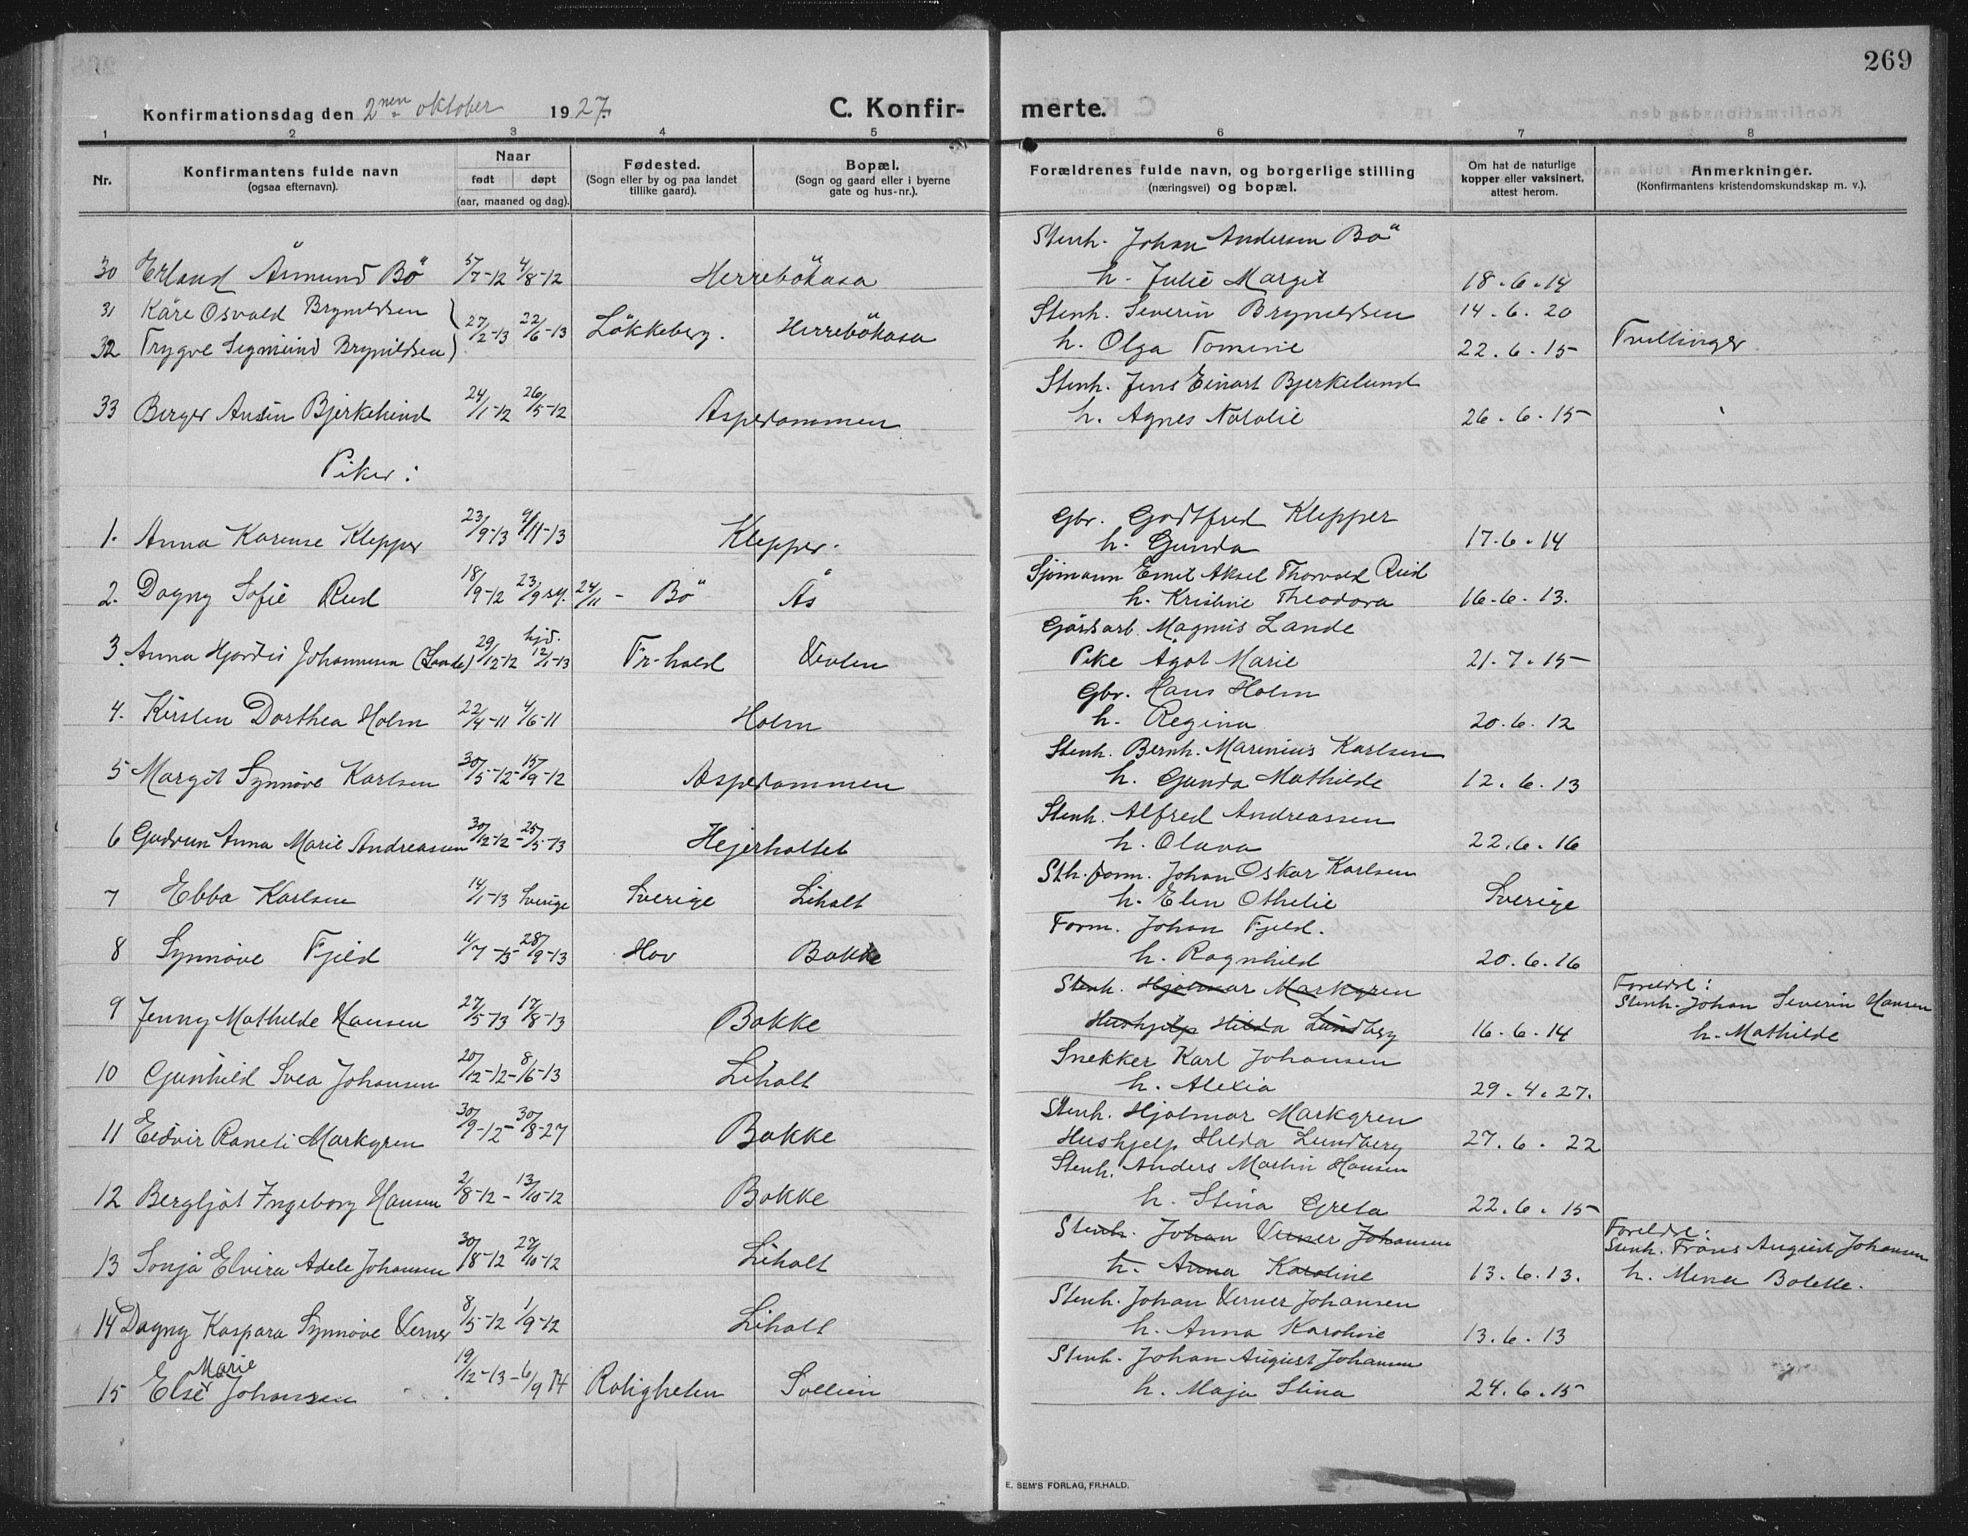 269
Konfirmationsdag den 2nen oktober 1927.
C. Konfirmerte.
1 2 3 4 5 6 7 8
Nr.
Konfirmantens fulde navn (ogsaa efternavn).
Naar født døpt (aar, maaned og dag).
Fødested. (Sogn eller by og paa landet tillike gaard).
Bopæl. (Sogn og gaard eller i byerne gate og hus-nr.).
Forældrenes fulde navn, og borgerlige stilling (næringsvei) og bopæl.
Om hat de naturlige kopper eller vaksinert, attest herom.
Anmerkninger. (Konfirmantens kristendomskundskap m. v.).
Stenh. Johan Andersen Bö
30 Erland Åsmund Bö 5/7-12 4/8-12 Herrebökasa h. Julie Margit 18.6.14
31 Kåre Osvald Brynildsen Stenh. Severin Brynildsen 14.6.20
27/2-13 22/6-13 Lökkeberg. Herrebökasa Tvillinger
32 Trygve Sigmund Brynildsen h. Olga Tomine 22.6.15
Stenh. Jens Einart Bjerkelund
33 Birger Anton Bjerkelund 24/1-12 26/5-12 Aspedammen h. Agnes Natalie 26.6.15
Piker:
Gbr. Godtfred Klepper
1. Anna Karense Klepper 23/9-13 9/11-13 Klepper. h. Gunda 17.6.14
Sjömann Emil Aksel Thorvald Rud
2. Dagny Sofie Rud 18/9-12 23/9 24/11 - Bö Ås h. Kristine Theodora 16.6.13.
Gårdsarb. Magnus Lande
3. Anna Hjördis Johannesen (Lande) 29/12-12 hjd. 12/1-13 Fr-hald Veden Pike Agot Marie 21.7.15
Gbr. Hans Holm
4. Kirsten Dorthea Holm 22/4-11 4/6-11 Holm h. Regina 20.6.12
Stenh. Bernh. Marinius Karlsen
5 Margit Synnöve Karlsen 30/5-12- 15/9-12 Aspedammen h. Gunda Mathilde 12.6.13
Stenh. Alfred Andreassen
6 Gudrun Anna Marie Andreasen 30/12-12- 25/5-13 Hejerholtet h. Olava 22.6.16
Sth.form. Johan Oskar Karlsen
7 Ebba Karlsen 14/1-13 Sverige Sverige Liholt h. Elin Othelie Sverige
Form. Johan Fjeld.
8 Synnöve Fjeld 11/7-13 28/9-13 Hov Bakke h. Ragnhild 20.6.16
Stenh. Hjalmar Markgren Foreldre:
9 Jenny Mathilde Hansen 27/5-13 17/8-13 Bakke Hushjelp Hilda Lundberg 16.6.14 Stenh. Johan Severin Hansen
h. Mathilde
Snekker Karl Johansen
10 Gunhild Svea Johansen 20/12-12- 8/6-13 Liholt h. Alexia 29.4.27.
Stenh. Hjalmar Markgren
11 Eldvir Raneli Markgren 30/9-12- 30/8-27 Bakke Hushjelp Hilda Lundberg 27.6.22
Stenh. Anders Martin Hansen
12 Bergljot Ingeborg Hansen 2/8-12- 13/10-12 Bakke h. Stina Greta 22.6.15
Stenh. Johan Verner Johansen Foreldre:
13 Sonja Elvira Adele Johansen 30/8-12 27/10-12 Liholt h. Anna Karoline 13.6.13. Stenh. Frans August Johansen
h. Mina Bolette.
Stenh. Johan Verner Johansen
14 Dagny Kaspara Synnöve Verner 8/5-12 1/9-12 Liholt h. Anna Karoline 13.6.13
Stenh. Johan August Johansen
15 Else Marie Johansen 19/12-13- 6/9 14 Roligheten Sollien h. Maja Stina 24.6.15
E. SEM'S FORLAG, FR.HALD.